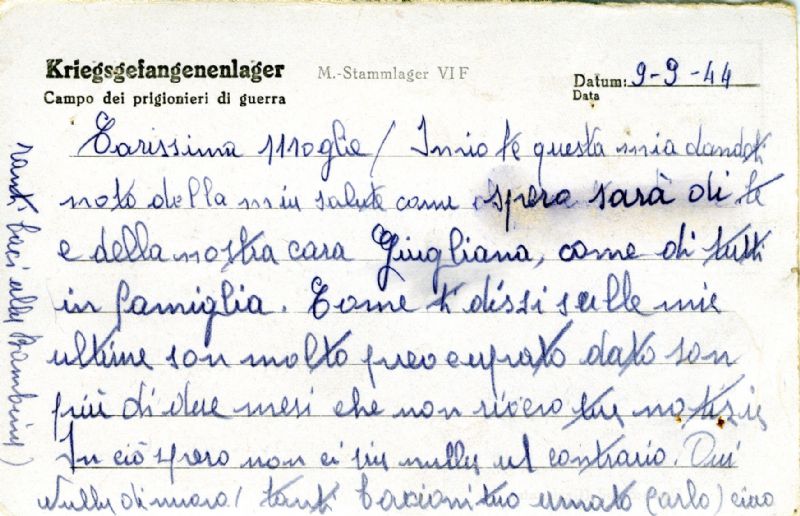 Kriegsgefangenenlager
M.-Stammlager VI F
Datum: 9-9-44
Campo dei prigionieri di guerra
Data
Carissima Moglie/ Invio te questa mia dandoti
noto della mia salute come spero sarà di te
e della nostra cara Giugliana, come di tutti
in famiglia. Come ti dissi sulle mie
ultime son molto preocupato dato son
più di due mesi che non ricevo tue notizie
In ciò spero non ci sia nulla al contrario. Qui
Nulla di nuovo/ tanti bacioni tuo amato Carlo) ciao
tanti baci alla Bambina)